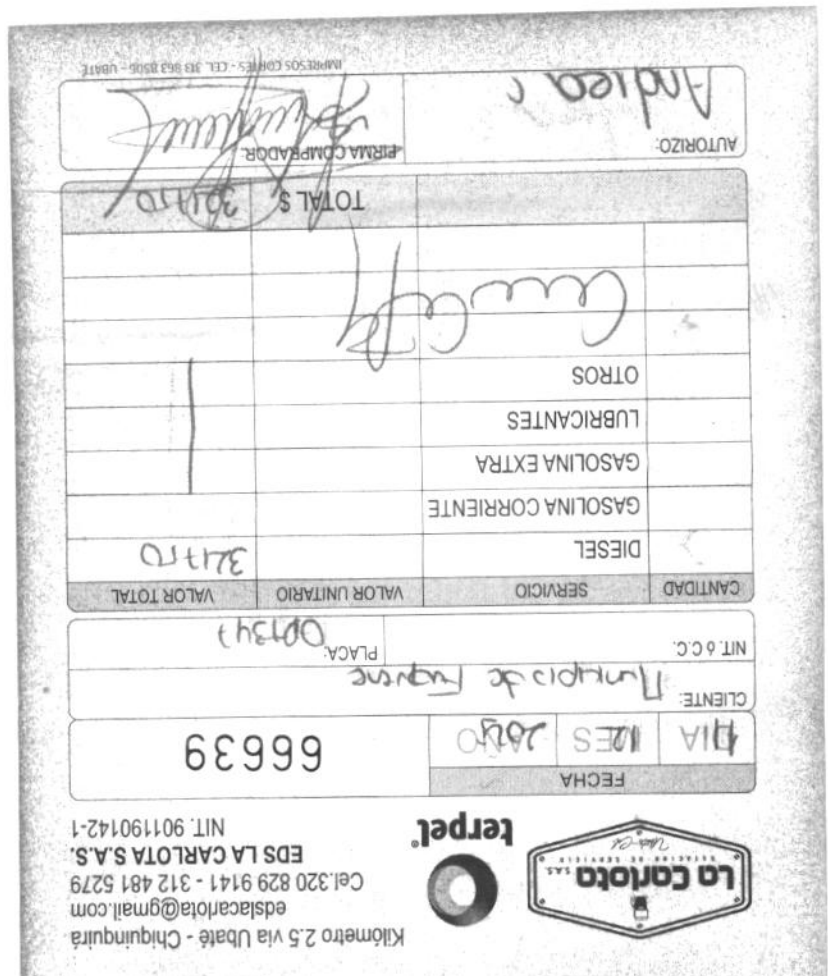 La Carlota S.A.S.
ESTACIÓN DE SERVICIO
terpel
Kilómetro 2.5 vía Ubaté - Chiquinquirá
edslacarlota@gmail.com
Cel.320 829 9141 - 312 481 5279
EDS LA CARLOTA S.A.S.
NIT. 901190142-1
FECHA
DIA MES AÑO
12
66639
CLIENTE: Municipio de Fuquene
NIT. Ó C.C. PLACA:
CANTIDAD SERVICIO VALOR UNITARIO VALOR TOTAL
DIESEL
GASOLINA CORRIENTE
GASOLINA EXTRA
LUBRICANTES
OTROS
TOTAL $
AUTORIZO: Andrea C
FIRMA COMPRADOR:
IMPRESOS CORTÉS - CEL. 313 863 8506 - UBATÉ